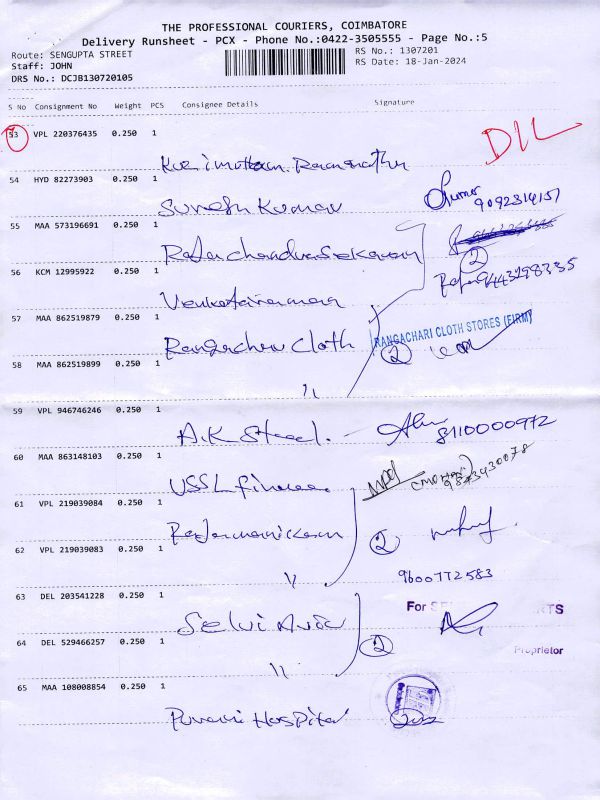 THE PROFESSIONAL COURIERS, COIMBATORE
Delivery Runsheet - PCX - Phone No.:0422-3505555 - Page No.:5
Route: SENGUPTA STREET
RS No.: 1307201
Staff: JOHN
RS Date: 18-Jan-2024
DRS No.: DCJB130720105
S No Consignment No Weight PCS Consignee Details Signature
53 VPL 220376435 0.250 1
DIL
54 HYD 82273903 0.250 1
Suresh Kumar
9092314157
55 MAA 573196691 0.250 1
Rajachandrasekaran
2
56 KCM 12995922 0.250 1
9443298335
Venkataraman
57 MAA 862519879 0.250 1
Rangachari Cloth
RANGACHARI CLOTH STORES (FIRM)
2
58 MAA 862519899 0.250 1
"
59 VPL 946746246 0.250 1
A.K Steel.
8110000972
60 MAA 863148103 0.250 1
USSL finance
61 VPL 219039084 0.250 1
Rajamanickam
2
62 VPL 219039083 0.250 1
"
9600772583
63 DEL 203541228 0.250 1
Selvi Auto
For
64 DEL 529466257 0.250 1
2
Proprietor
"
65 MAA 108008854 0.250 1
Hospital